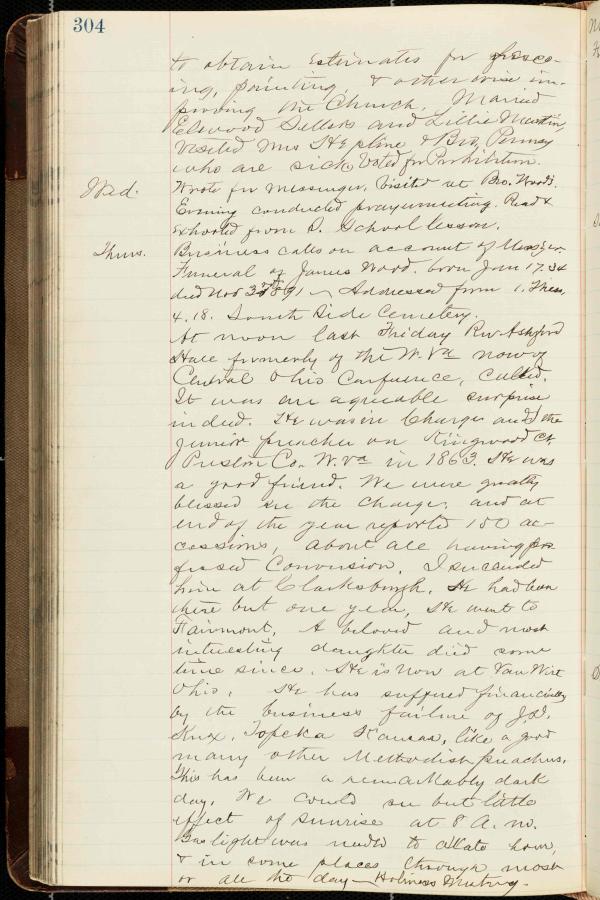 304
to obtain Estimates for fresco-
ing, painting, & otherwise im-
proving the Church. Married
Elwood Sellers and Lillie Martin,
Visited Mrs Hepline & Bro. Penney
who are sick. Voted for Prohibition.
Wed. Wrote for Messenger. Visited at Bro. Wood's.
Evening conducted prayermeeting. Read &
exhorted from S. School lesson.
Thurs. Business calls on account of Messger.
Funeral of James Wood. born Jan 17. 34
died Nov 3rd 1891 — Addressed from 1. Thess,
4.18. South Side Cemetery.
At noon last Friday Rev Ashford
Hall formerly of the W. Va now of
Central Ohio Conference, called.
It was an agreeable surprise
indeed. He was in Charge and I the
junior preacher on Kingwood Ct
Preston Co. W. Va in 1863. He was
a good friend. We were greatly
blessed in the Charge, and at
end of the year reported 150 ac-
cessions, about all having pro-
fessed Conversion. I succeeded
him at Clarksburgh. He had been
there but one year, He went to
Fairmont. A beloved and most
interesting daughter died some
time since. He is now at Van Wert
Ohio. He has suffered financially
by the business failure of J.D.
Knox, Topeka Kansas, like a good
many other Methodist preachers.
This has been a remarkably dark
day. We could see but little
effect of sunrise at 8 A. M.
Gas light was needed to a late hour,
& in some places through most
or all the day — Holiness Meeting.